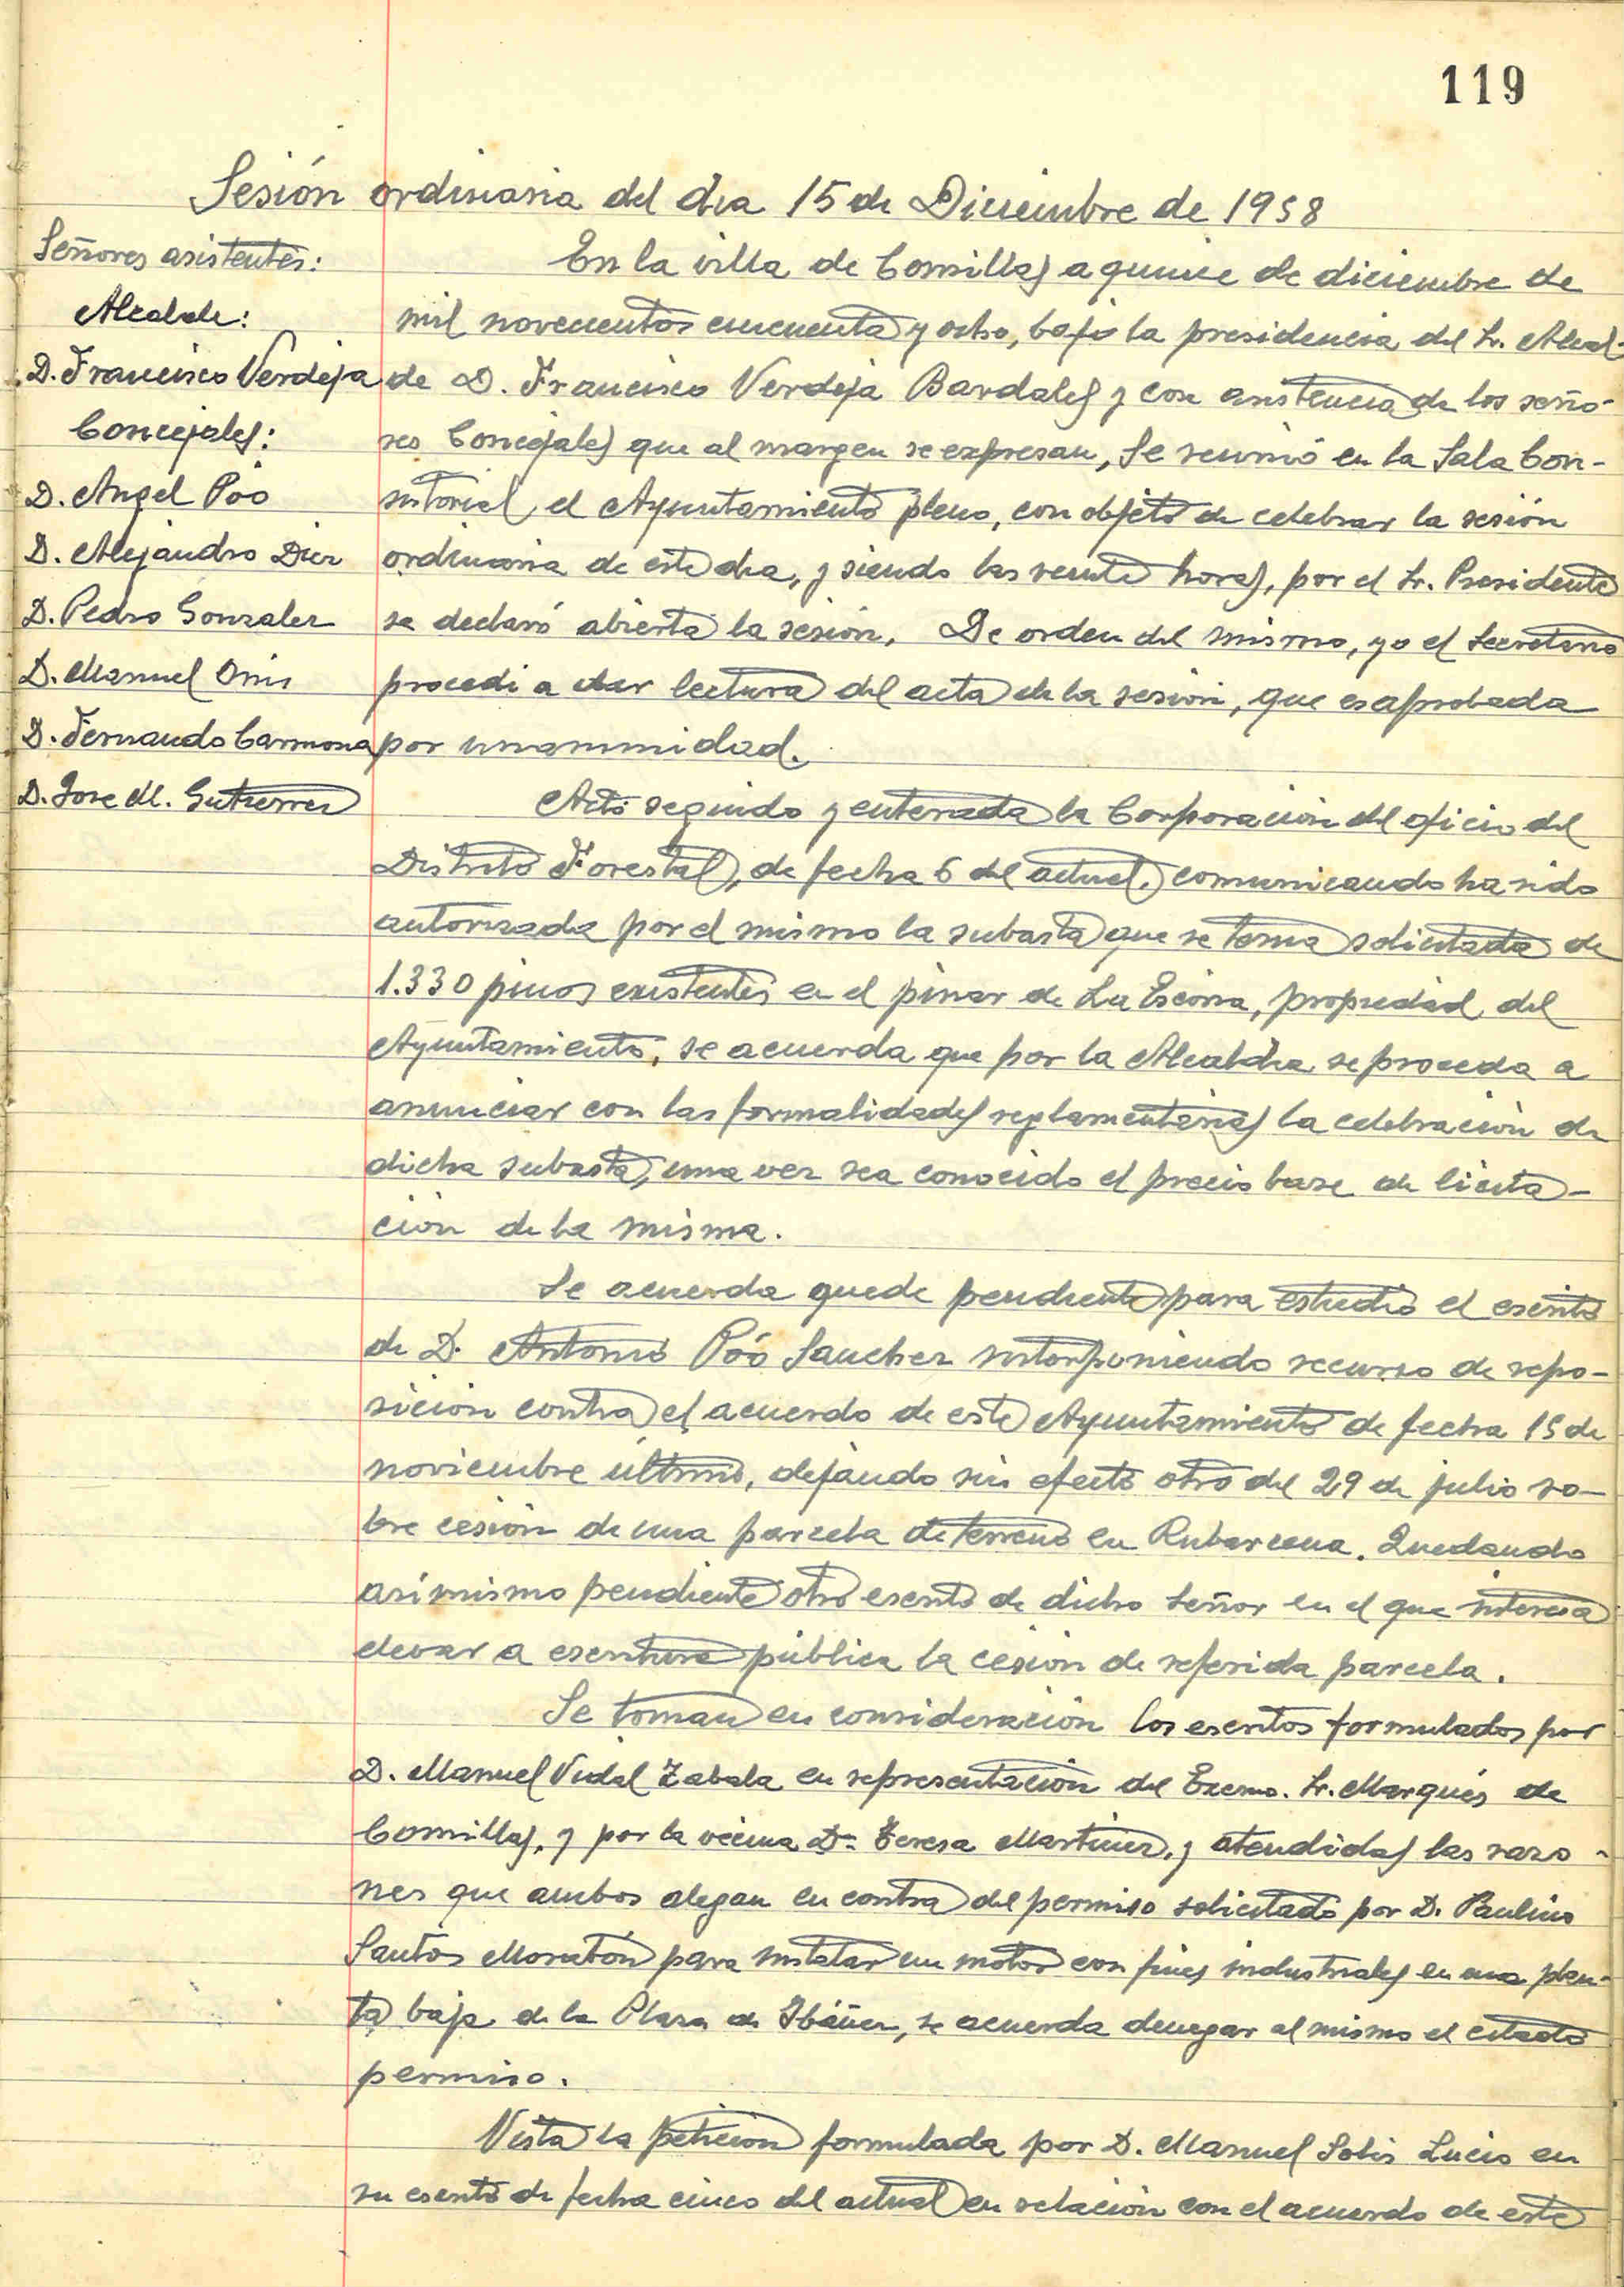 119
Sesión ordinaria del dia 15 de Diciembre de 1958
Señores asistentes:
Alcalde:
D. Francisco Verdeja
Concejales:
D. Angel Póo
D. Alejandro Diez
D. Pedro Gonzalez
D. Manuel
D. Fernando Carmona
D. Jose M. Gutierrez
En la villa de Comillas a quince de diciembre de
mil novecientos cincuenta y ocho, bajo la presidencia del Sr. Alcal-
de D. Francisco Verdeja Bardales y con asistencia de los seño-
res Concejales que al margen se expresan, se reunió en la Sala Con-
sistorial el Ayuntamiento pleno, con objeto de celebrar la sesión
ordinaria de este dia, y siendo las veinte horas, por el Sr. Presidente
se declaró abierta la sesión. De orden del mismo, yo el Secretario
procedi a dar lectura del acta de la sesión, que es aprobada
por unanimidad.
Acto seguido y enterada la Corporación del oficio del
Distrito Forestal, de fecha 6 del actual, comunicando ha sido
autorizada por el mismo la subasta que se tenia solicitada de
1.330 pinos existentes en el pinar de La propiedad del
Ayuntamiento, se acuerda que por la Alcaldia se proceda a
anunciar con las formalidades reglamentarias la celebración de
dicha subasta, una vez sea conocido el precio base de licita-
ción de la misma.
Se acuerda quede pendiente para estudio el escrito
de D. Antonio Póo Sanchez interponiendo recurso de repo-
sición contra el acuerdo de este Ayuntamiento de fecha 15 de
noviembre último, dejando sin efecto otro del 29 de julio so-
bre cesión de una parcela de terreno en Rubarcena. Quedando
asimismo pendiente otro escrito de dicho Señor en el que interesa
elevar a escritura pública la cesión de referida parcela.
Se toman en consideración los escritos formulados por
D. Manuel Vidal Zabala en representación del Excmo. Sr. Marqués de
Comillas, y por la vecina Dª Teresa Martinez, y atendidas las razo-
nes que ambos alegan en contra del permiso solicitado por D. Paulino
Santos Moratón para instalar un motor con fines industriales en una plan-
ta baja de la Plaza de Ibáñez, se acuerda denegar al mismo el citado
permiso.
Vista la petición formulada por D. Manuel Solis Lucio en
su escrito de fecha cinco del actual en relación con el acuerdo de este